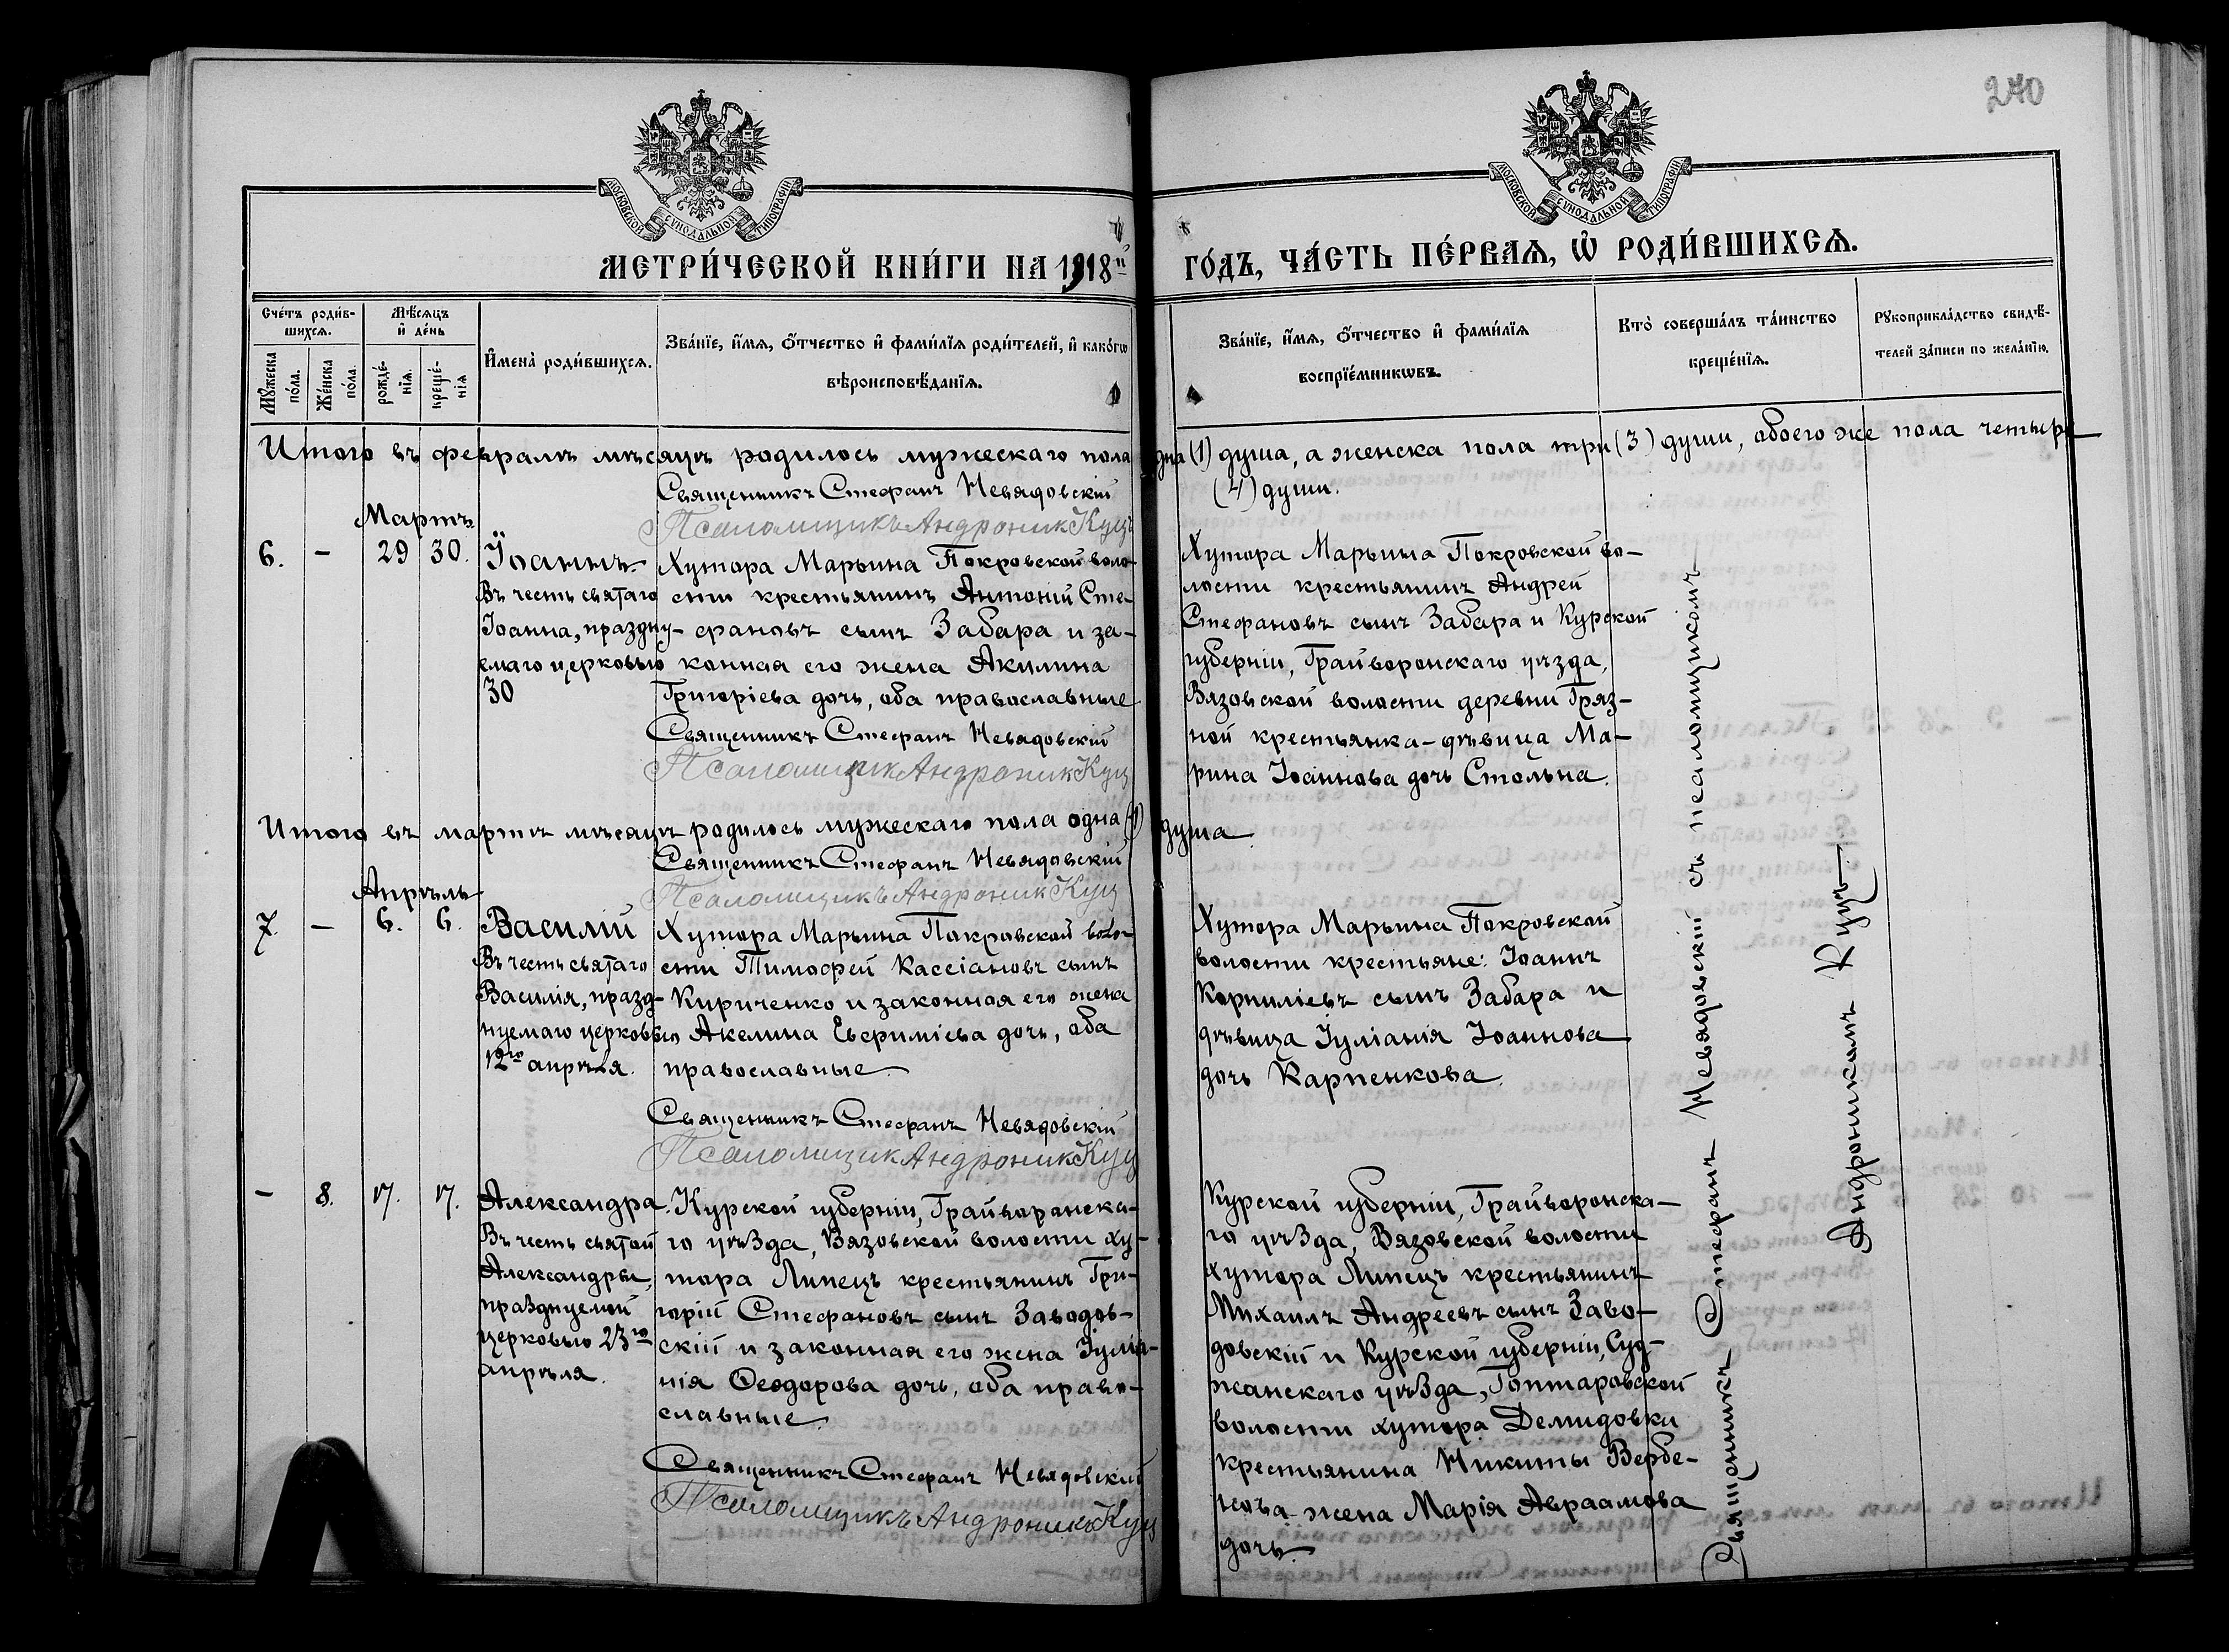 240
МОСКОВСКОЙ СѴНОДАЛЬНОЙ ТИПОГРАФІИ
МОСКОВСКОЙ СѴНОДАЛЬНОЙ ТИПОГРАФІИ
МЕТРИ́ЧЕСКОЙ КНИ́ГИ НА 1918й ГО́ДЪ, ЧА́СТЬ ПЕ́РВАѦ, Ѡ҆ РОДИ́ВШИХСѦ.
Сче́тъ роди́в-
шихсѧ.
Мѹ́жеска по́ла.
Же́нска по́ла.
Мѣ́сѧцъ и҆ де́нь
рожде́-
нїѧ.
креще́-
нїѧ
И҆мена̀ роди́вшихсѧ.
Зва́нїе, и҆́мѧ, ѻ҆́тчество и҆ фами́лїѧ роди́телей, и҆ како́гѡ
вѣроисповѣ́данїѧ.
Зва́нїе, и҆́мѧ, ѻ҆́тчество и҆ фами́лїѧ
воспрїе́мникѡвъ.
Кто̀ соверша́лъ та́инство
креще́нїѧ.
Рѹкоприкла́дство свидѣ́-
телей за́писи по жела́нїю.
Итого въ февралѣ мѣсяцѣ родилось мужескаго пола одна (1) душа, а женска пола три (3) души, обоего же пола четыре
(4) души.
Священникъ Стефанъ Невядовскій
Псаломщикъ Андроник Куцъ
Мартъ
6. – 29 30.
Іоаннъ
Въ честь святаго
Іоанна, праздну-
емаго церковью
30
Хутора Марьина Покровской воло-
сти крестьянинъ Антоній Сте-
фановъ сынъ Забара и за-
конная его жена Акилина
Григоріева дочь, оба православные
Священникъ Стефанъ Невядовскій
Псаломщик Андроник Куц
Хутора Марьина Покровской во-
лости крестьянинъ Андрей
Стефановъ сынъ Забара и Курской
губерніи, Грайворонскаго уѣзда,
Вязовской волости деревни Гряз-
ной крестьянка-дѣвица Ма-
рина Іоаннова дочь Стольна.
Итого въ мартѣ мѣсяцѣ родилось мужескаго пола одна (1) душа
Священникъ Стефанъ Невядовскій
Псаломщикъ Андроник Куц
Апрѣль
7. – 6. 6.
Василій
Въ честь святаго
Василія, празд-
нуемаго церковью
12го апрѣля.
Хутора Марьина Покровской воло-
сти Тимофей Кассіановъ сынъ
Кириченко и законная его жена
Акелина Евфиміева дочь, оба
православные
Священникъ Стефанъ Невядовскій
Псаломщик Андроник Куц
Хутора Марьина Покровской
волости крестьяне: Іоаннъ
Корниліевъ сынъ Забара и
дѣвица Іуліанія Іоаннова
дочь Карпенкова.
– 8. 17. 17.
Александра.
Въ честь святой
Александры,
празднуемой
церковью 23го
апрѣля.
Курской губерніи, Грайворонска-
го уѣзда, Вязовской волости ху-
тора Липецъ крестьянинъ Гри-
горій Стефановъ сынъ Заводов-
скій и законная его жена Іуліа-
нія Ѳеодорова дочь, оба право-
славные
Священникъ Стефанъ Невядовскій
Псаломщикъ Андроникъ Куц
Курской губерніи, Грайворонска-
го уѣзда, Вязовской волости
хутора Липецъ крестьянинъ
Михаилъ Андреевъ сынъ Заво-
довскій и Курской губерніи, Суд-
жанскаго уѣзда, Гоптаровской
волости хутора Демидовки
крестьянина Никиты Вербе-
жена Марія Авраамова
дочь.
Священникъ Стефанъ Невядовскій съ псаломщикомъ
Андроникомъ Куцъ